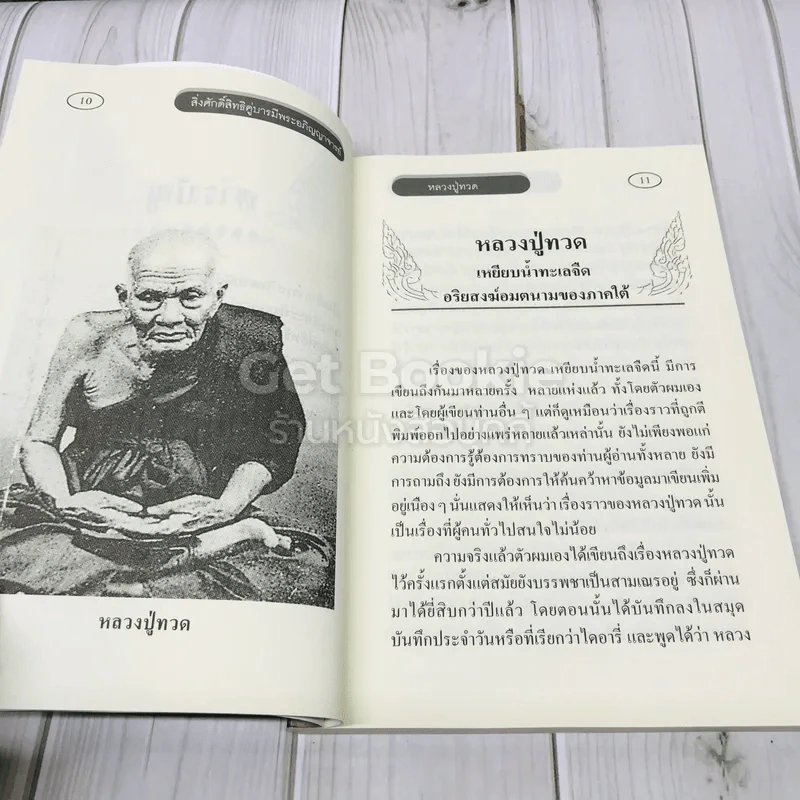 10
สิ่งศักดิ์สิทธิคู่บารมีพระอภิญญาจารย์
หลวงปู่ทวด
หลวงปู่ทวด
11
หลวงปู่ทวด
เหยียบน้ำทะเลจืด
อริยสงฆ์อมตนามของภาคใต้
เรื่องของหลวงปู่ทวด เหยียบน้ำทะเลจืดนี้ มีการ
เขียนถึงกันมาหลายครั้ง หลายแห่งแล้ว ทั้งโดยตัวผมเอง
และโดยผู้เขียนท่านอื่น ๆ แต่ก็ดูเหมือนว่าเรื่องราวที่ถูกตี
พิมพ์ออกไปอย่างแพร่หลายแล้วเหล่านั้น ยังไม่เพียงพอแก่
ความต้องการรู้ต้องการทราบของท่านผู้อ่านทั้งหลาย ยังมี
การถามถึง ยังมีการต้องการให้ค้นคว้าหาข้อมูลมาเขียนเพิ่ม
อยู่เนือง ๆ นั่นแสดงให้เห็นว่า เรื่องราวของหลวงปู่ทวด นั้น
เป็นเรื่องที่ผู้คนทั่วไปสนใจไม่น้อย
ความจริงแล้วตัวผมเองได้เขียนถึงเรื่องหลวงปู่ทวด
ไว้ครั้งแรกตั้งแต่สมัยยังบรรพชาเป็นสามเณรอยู่ ซึ่งก็ผ่าน
มาได้ยี่สิบกว่าปีแล้ว โดยตอนนั้นได้บันทึกลงในสมุด
บันทึกประจำวันหรือที่เรียกว่าไดอารี่ และพูดได้ว่า หลวง
Get Bookie
ร้านหนังสือเก็ทบุ๊คกี้